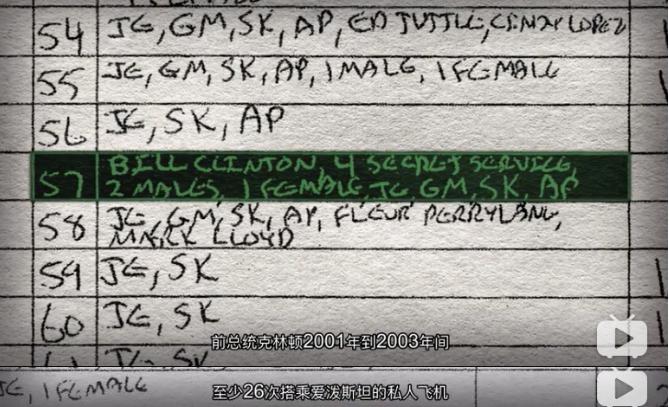 54 JE, GM, SK, AP, ED TUTTLE, CINDY LOPEZ
55 JE, GM, SK, AP, 1 MALE, 1 FEMALE
56 JE, SK, AP
57 BILL CLINTON, 4 SECRET SERVICE,
2 MALES, 1 FEMALE, JE GM, SK, AP
58 JE, GM, SK, AP, FLEUR PERRYLANG,
MARK LLOYD
59 JE, SK
60 JE, SK
前总统克林顿2001年到2003年间
JE, SK
JE, 1 FEMALE
至少26次搭乘爱泼斯坦的私人飞机